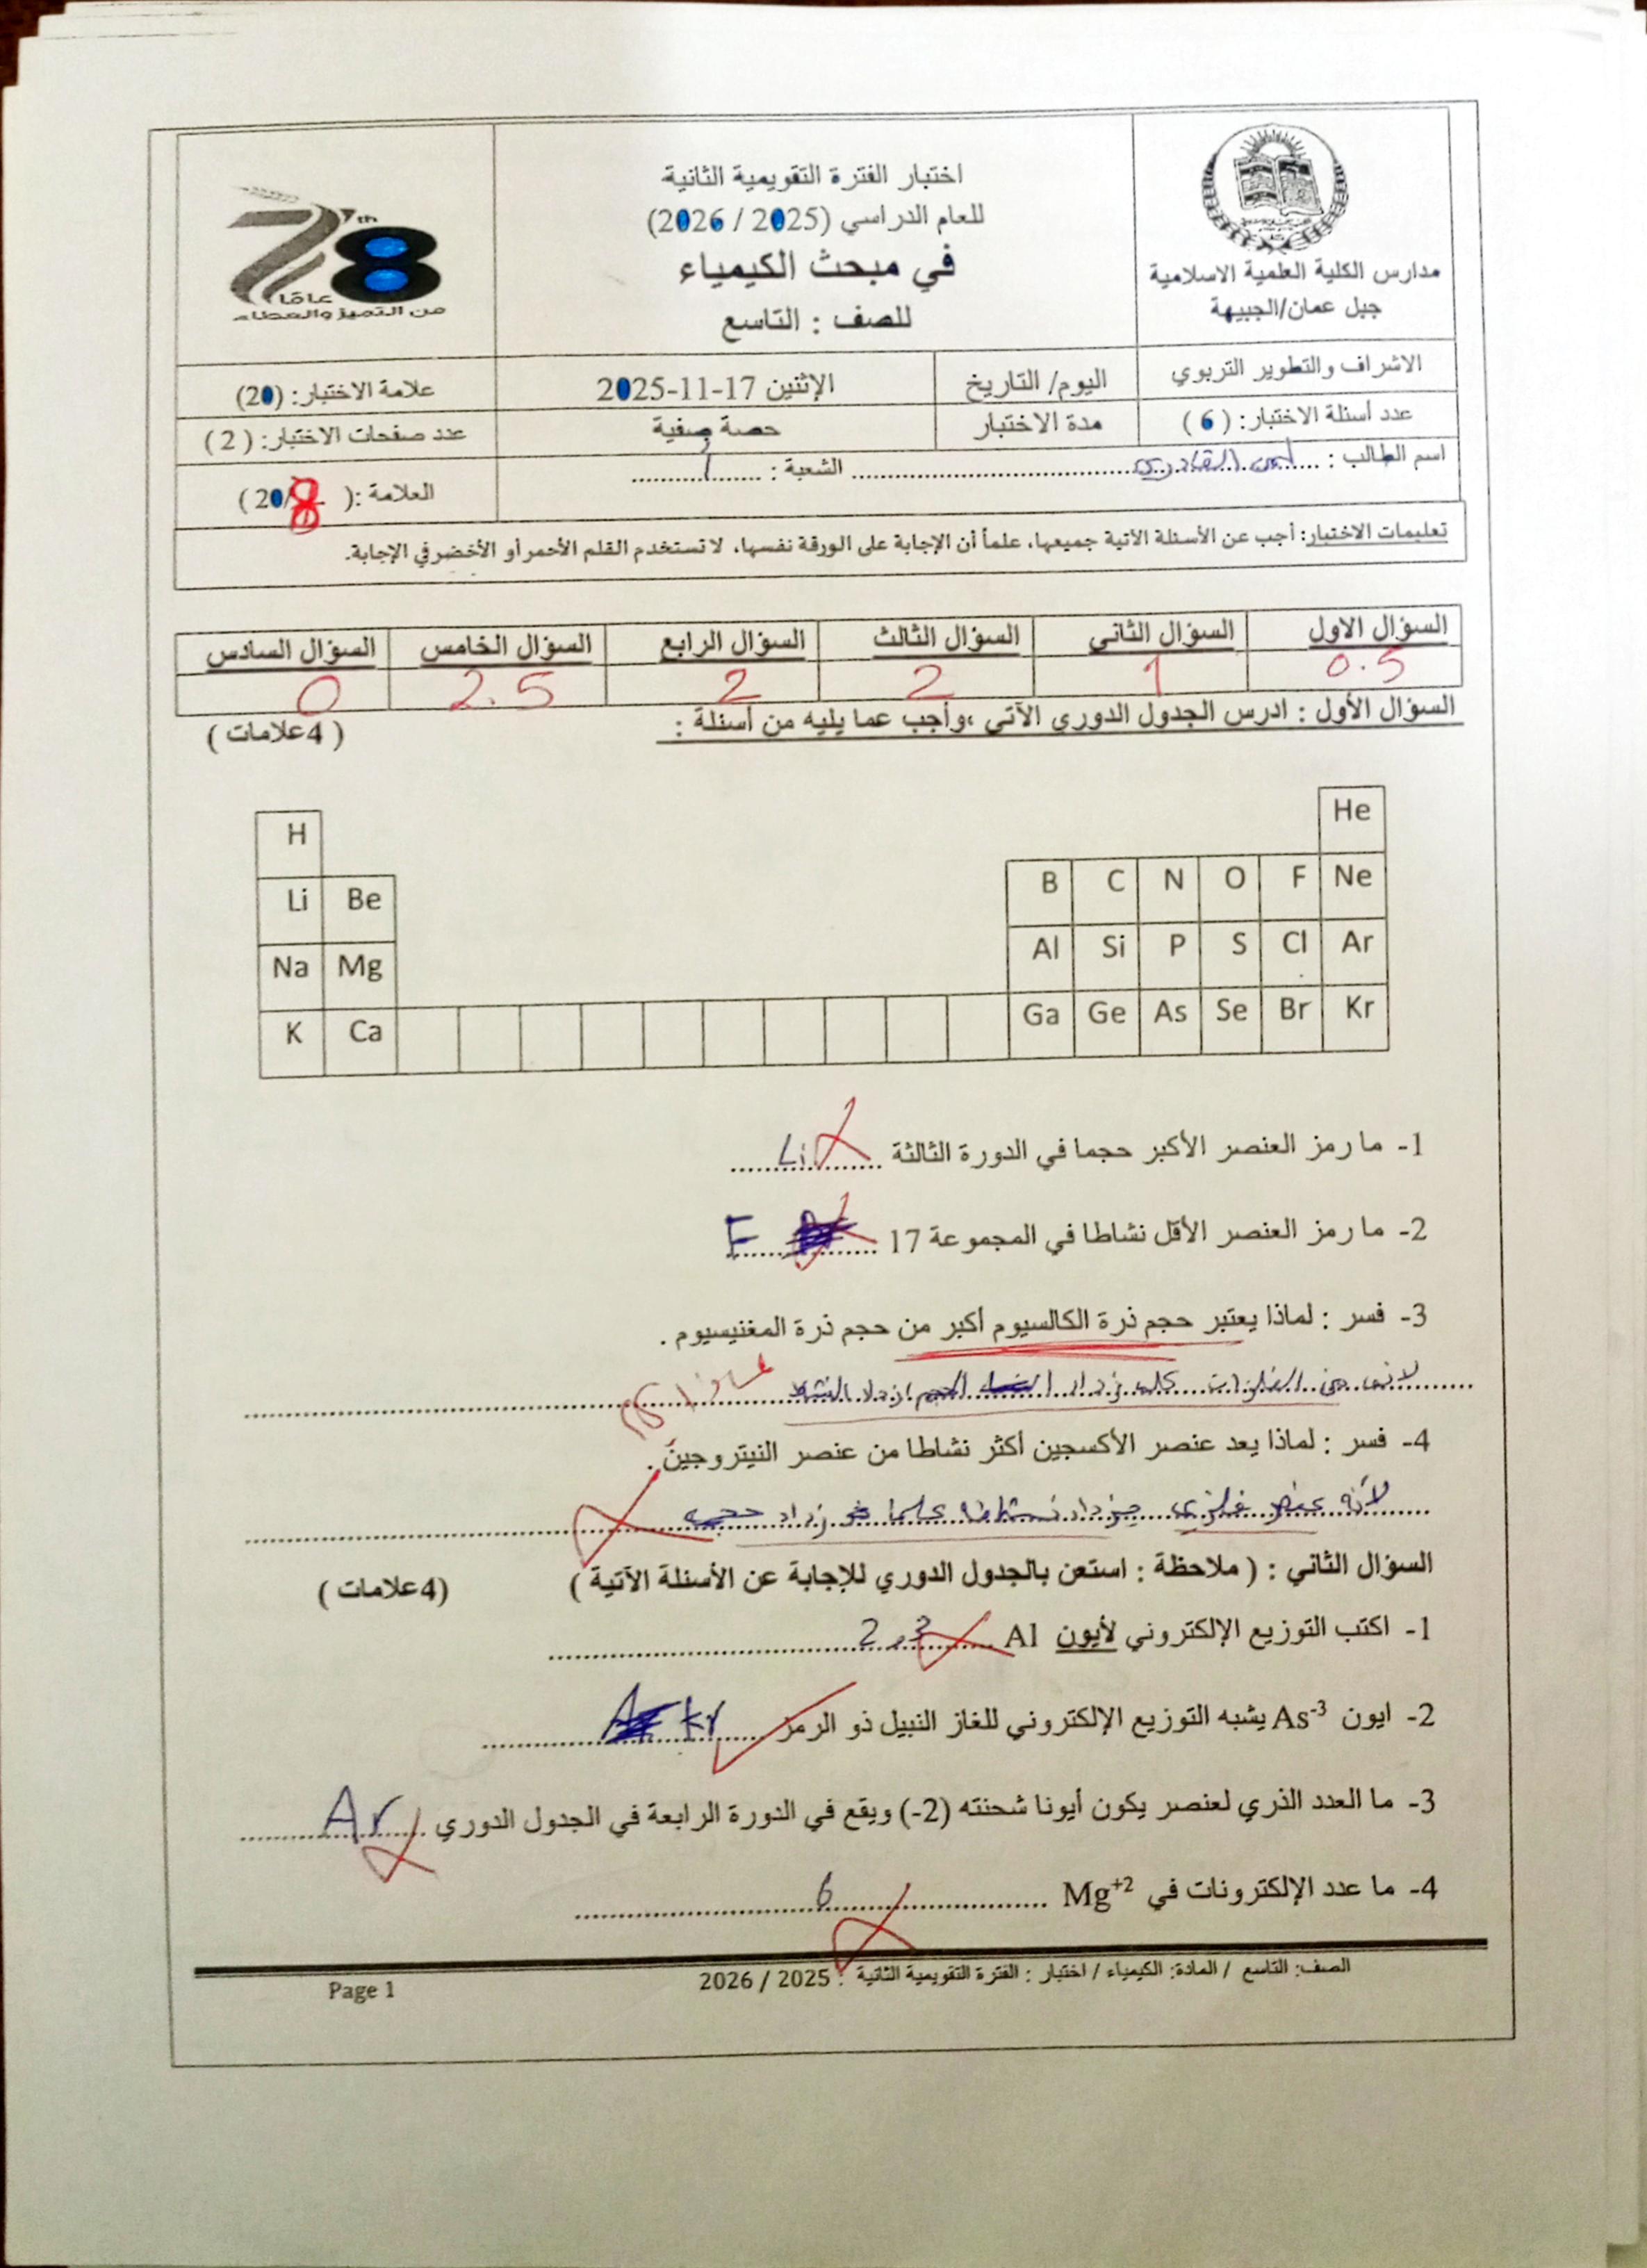 مدارس الكلية العلمية الاسلامية
جبل عمان/الجبيهة
اختبار الفترة التقويمية الثانية
للعام الدراسي (2025 / 2026)
في مبحث الكيمياء
للصف : التاسع
78 th
عامًا
من التميز والعطاء
الاشراف والتطوير التربوي
اليوم/ التاريخ
الإثنين 17-11-2025
علامة الاختبار: (20)
عدد أسئلة الاختبار: ( 6 )
مدة الاختبار
حصة صفية
عدد صفحات الاختبار: ( 2 )
اسم الطالب : القادري الشعبة : أ
العلامة :( 8 /20 )
تعليمات الاختبار: أجب عن الأسئلة الآتية جميعها، علماً أن الإجابة على الورقة نفسها، لا تستخدم القلم الأحمر أو الأخضر في الإجابة.
السؤال الاول السؤال الثاني السؤال الثالث السؤال الرابع السؤال الخامس السؤال السادس
0.5 1 2 2 2.5 0
السؤال الأول : ادرس الجدول الدوري الآتي ،وأجب عما يليه من أسئلة : ( 4علامات )
H He
Li Be B C N O F Ne
Na Mg Al Si P S Cl Ar
K Ca Ga Ge As Se Br Kr
1- ما رمز العنصر الأكبر حجما في الدورة الثالثة Li
2- ما رمز العنصر الأقل نشاطا في المجموعة 17 F
3- فسر : لماذا يعتبر حجم ذرة الكالسيوم أكبر من حجم ذرة المغنيسيوم .
من الفلزات كلما زاد الحجم
4- فسر : لماذا يعد عنصر الأكسجين أكثر نشاطا من عنصر النيتروجين .
لأنه عنصر فلزي كلما زاد حجمه
السؤال الثاني : ( ملاحظة : استعن بالجدول الدوري للإجابة عن الأسئلة الآتية ) (4علامات )
1- اكتب التوزيع الإلكتروني لأيون Al 2,3
2- ايون As-3 يشبه التوزيع الإلكتروني للغاز النبيل ذو الرمز kr
3- ما العدد الذري لعنصر يكون أيونا شحنته (2-) ويقع في الدورة الرابعة في الجدول الدوري Ar
4- ما عدد الإلكترونات في Mg+2 6
الصف: التاسع / المادة: الكيمياء / اختبار : الفترة التقويمية الثانية : 2025 / 2026
Page 1